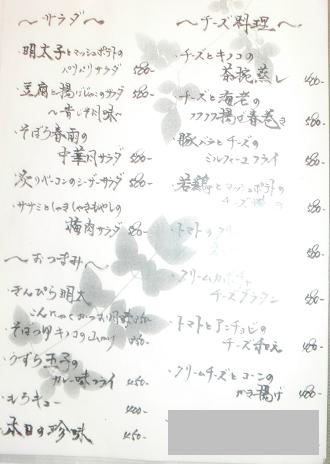 ～サラダ～
・明太子とマッシュポテトの
パリパリサラダ 480-
・豆腐と揚げじゃこのサラダ
～青しそ風味～ 480-
・そぼろ春雨の
中華風サラダ 480-
・炙りベーコンのシーザーサラダ 480-
・ササミとしゃきしゃきもやしの
梅肉サラダ 480-
～おつまみ～
・きんぴら明太
こんにゃく
・そばつゆキノコの山かけ
・うずら玉子の
カレー味フライ 450-
・もろキュー 400-
・本日の珍味 450-
～チーズ料理～
・チーズとキノコの
茶碗蒸し
・チーズと海老の
フワフワ揚げ春巻き 480-
・豚バラとチーズの
ミルフィーユフライ 480-
・若鶏とマッシュポテトの
チーズ 480-
・トマトの
480-
・クリームカボチャ
チーズグラタン 480-
・トマトとアンチョビの
チーズ和え 480-
・クリームチーズとコーンの
かき揚げ 480-